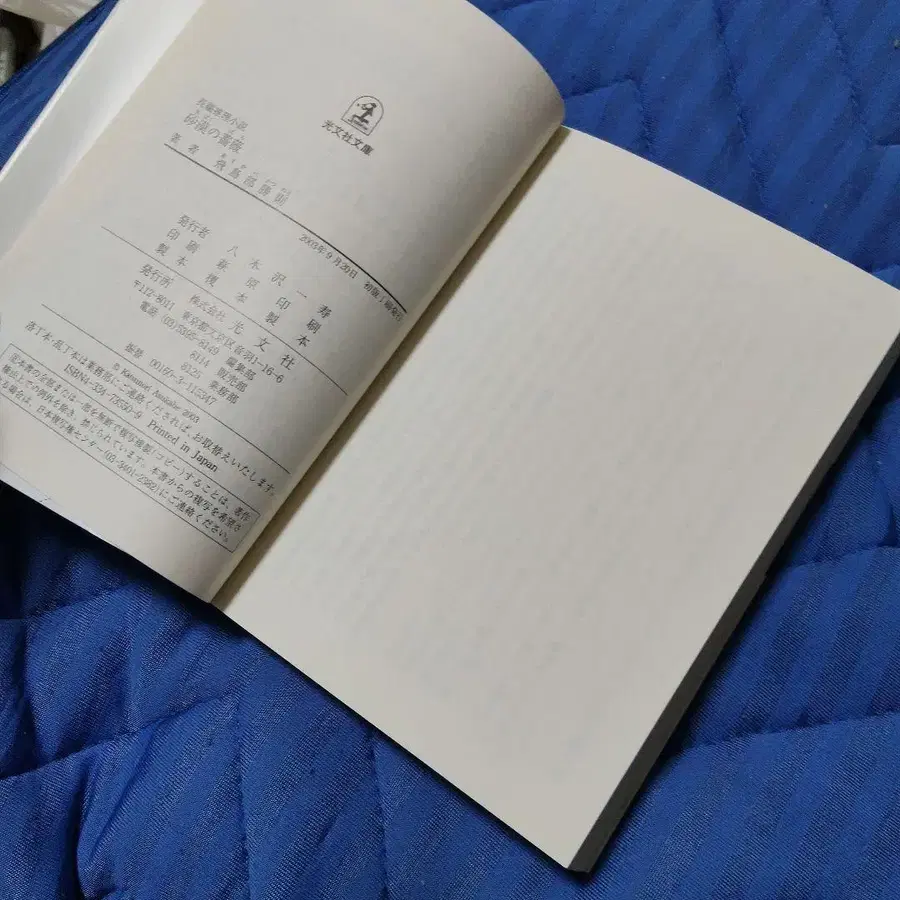 光文社文庫
長編推理小説
砂漠の薔薇
著者 飛鳥部勝則
2003年9月20日 初版1刷発行
発行者 八木沢一寿
印刷 萩原印刷
製本 榎本製本
発行所 株式会社 光文社
〒112-8011 東京都文京区音羽1-16-6
電話 (03)5395-8149 編集部
8114 販売部
8125 業務部
振替 00160-3-115347
© Katsunori Asukabe 2003
落丁本・乱丁本は業務部にご連絡くだされば、お取替えいたします。
Printed in Japan
本書の全部または一部を無断で複写複製(コピー)することは、著作
権法上での例外を除き、禁じられています。本書からの複写を希望さ
れる場合は、日本複写権センター(03-3401-2382)にご連絡ください。